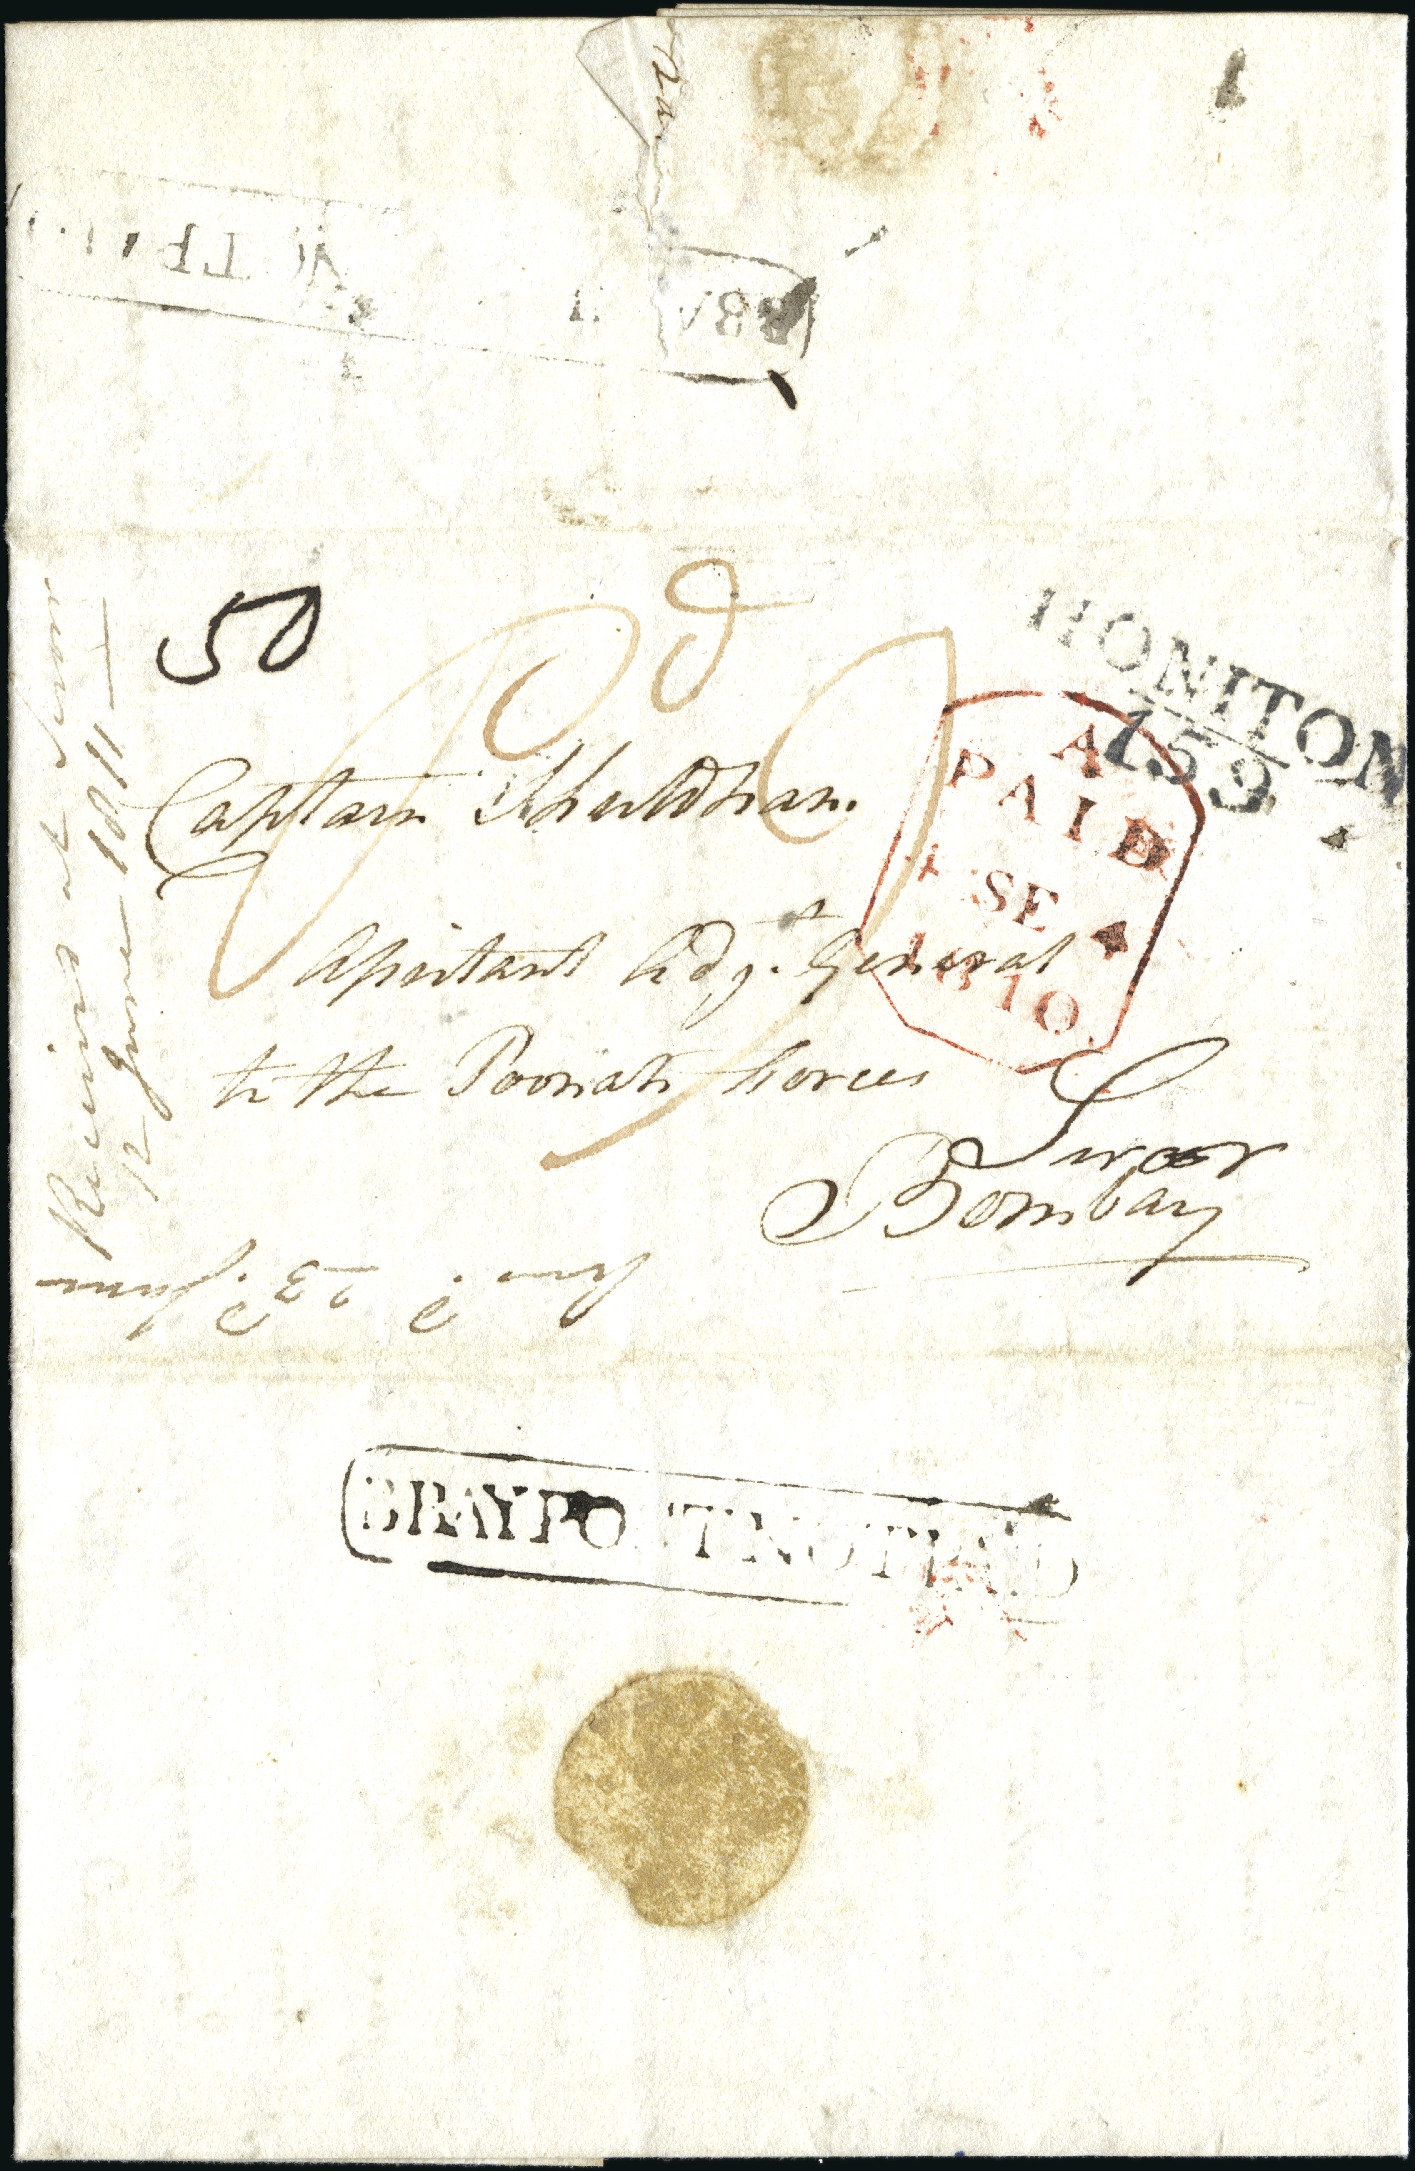 50
Pd
HONITON
159
A
PAID
SE 4
1810
Captain Shuldham
Assistant Adjt. General
to the Poonah Forces
Seroor
Bombay
Received at Seroor
12 June 1811
Ansd. 23d. June
BRAYPOSTNOTPAID